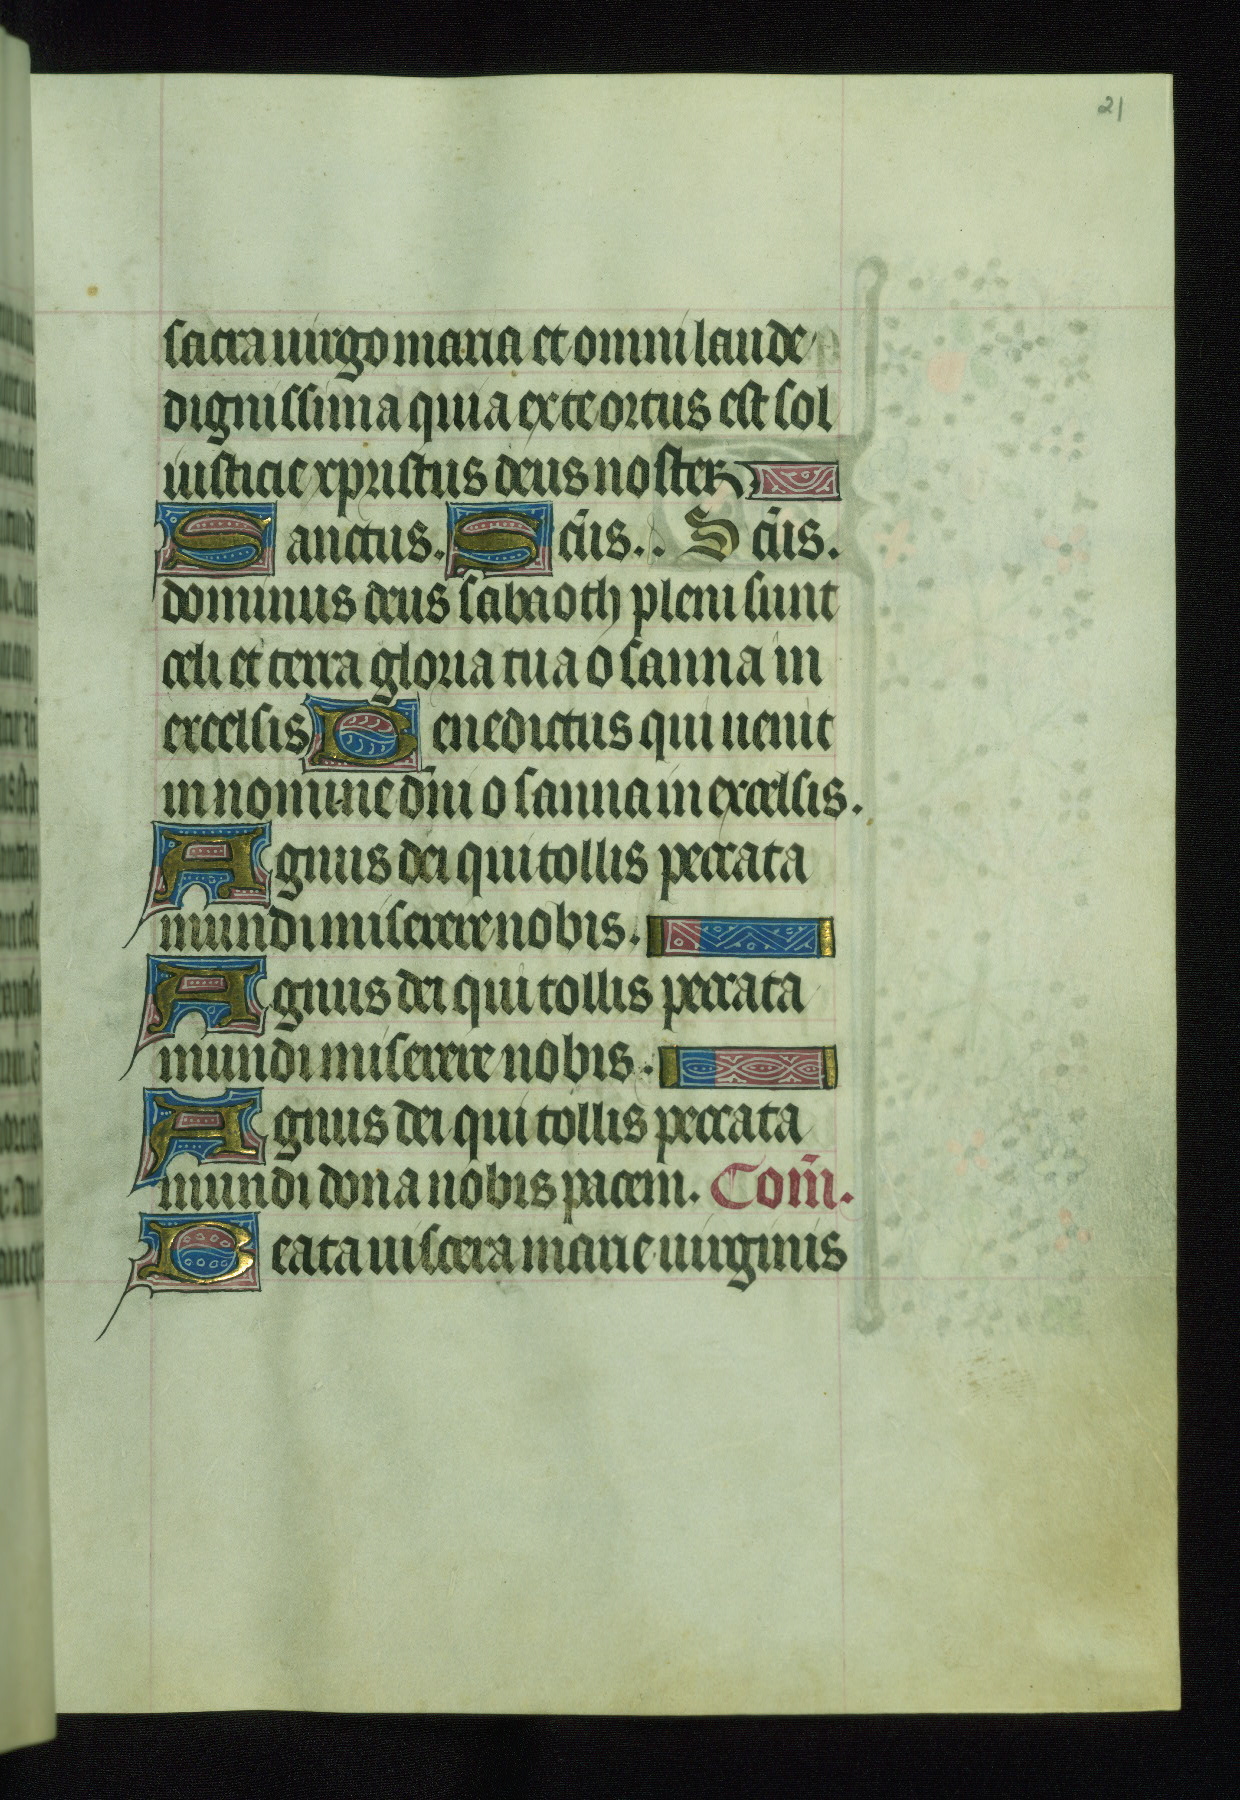 21
sacra uirgo maria et omni laude
dignissima quia ex te ortus est sol
iusticie xpristus deus noster
Sanctus. Sc̄us.. Sc̄us.
dominus deus sabaoth pleni sunt
celi et terra gloria tua osanna in
excelsis Benedictus qui uenit
in nomine dn̄i osanna in excelsis.
Agnus dei qui tollis peccata
mundi miserere nobis.
Agnus dei qui tollis peccata
mundi miserere nobis.
Agnus dei qui tollis peccata
mundi dona nobis pacem. Com̄.
Beata uiscera marie uirginis